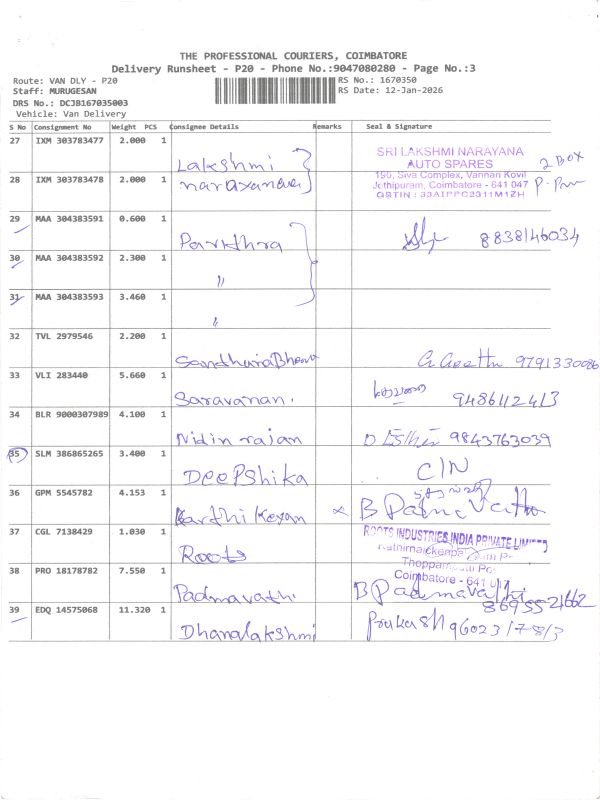 THE PROFESSIONAL COURIERS, COIMBATORE
Delivery Runsheet - P20 - Phone No.:9047080280 - Page No.:3
Route: VAN DLY - P20 RS No.: 1670350
Staff: MURUGESAN RS Date: 12-Jan-2026
DRS No.: DCJB167035003
Vehicle: Van Delivery
S No Consignment No Weight PCS Consignee Details Remarks Seal & Signature
27 IXM 303783477 2.000 1 Lakshmi
SRI LAKSHMI NARAYANA
AUTO SPARES 2 BOX
28 IXM 303783478 2.000 1
195, Siva Complex, Vannan Kovil
Jothipuram, Coimbatore - 641 047
29 MAA 304383591 0.600 1 Parkthra 8838146034
30 MAA 304383592 2.300 1 "
31 MAA 304383593 3.460 1 "
32 TVL 2979546 2.200 1 G Geetha 9791330086
33 VLI 283440 5.660 1 Saravanan. 9486112413
34 BLR 9000307989 4.100 1 Nidin rajan D Esther 9843763039
35 SLM 386865265 3.400 1 DeePshika C/N
36 GPM 5545782 4.153 1 Karthikeyan
37 CGL 7138429 1.030 1 Roots
ROOTS INDUSTRIES INDIA PRIVATE LIMITED
Thoppampatti Po.
Coimbatore - 641 017
38 PRO 18178782 7.550 1 Padmavathi B Padmavathi
8695521662
39 EDQ 14575068 11.320 1 Dhanalakshmi Prakash 9602317813